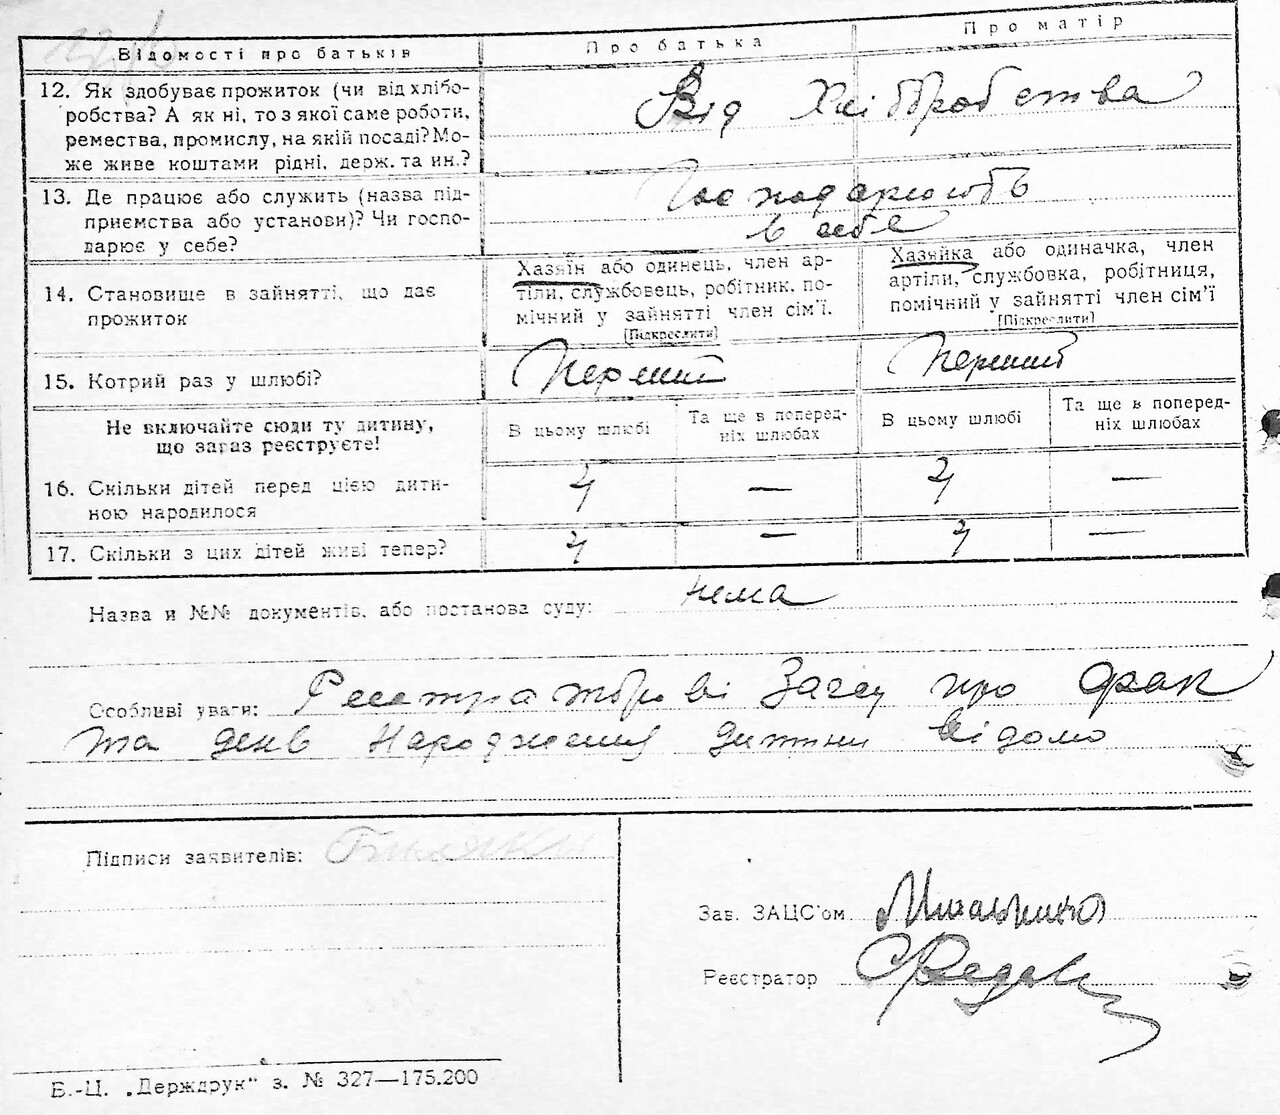 Відомості про батьків
Про батька
Про матір
12. Як здобуває прожиток (чи від хлібо-
робства? А як ні, то з якої саме роботи,
ремества, промислу, на якій посаді? Мо-
же живе коштами рідні, держ. та ин.?
Від Хліборобства
13. Де працює або служить (назва під-
приємства або установи)? Чи госпо-
дарює у себе?
Господарюють
в себе
14. Становище в зайнятті, що дає
прожиток
Хазяїн або одинець, член ар-
тіли, службовець, робітник, по-
мічний у зайнятті член сім'ї.
[Підкреслити]
Хазяйка або одиначка, член
артіли, службовка, робітниця,
помічний у зайнятті член сім'ї
[Підкреслити]
15. Котрий раз у шлюбі?
Перший
Перший
Не включайте сюди ту дитину,
що зараз реєструєте!
В цьому шлюбі
Та ще в поперед-
ніх шлюбах
В цьому шлюбі
Та ще в поперед-
ніх шлюбах
16. Скільки дітей перед цією дити-
ною народилося
4 — 4 —
17. Скільки з цих дітей живі тепер?
4 — 4 —
Назва и №№ документів, або постанова суду: нема
Особливі уваги: Реєстраторові Загсу про фак
та день народження дитини відомо
Підписи заявителів:
Зав. ЗАЦС'ом
Реєстратор
Б.-Ц. „Держдрук" з. № 327—175.200